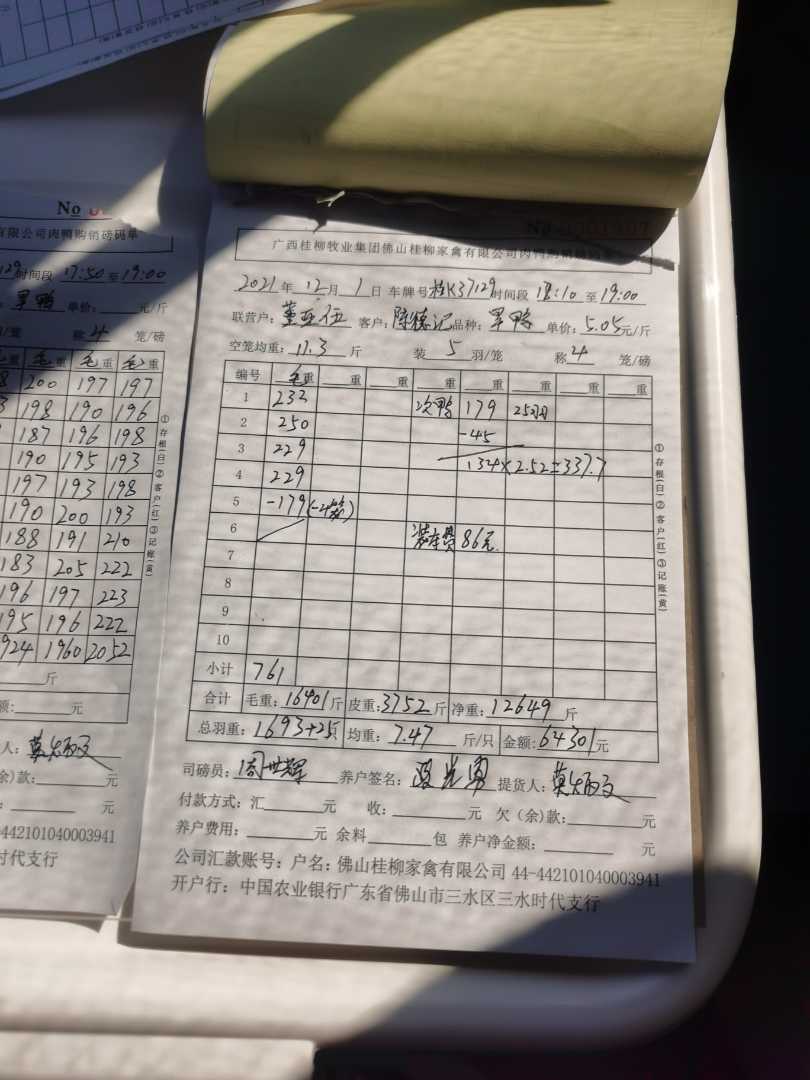 No
有限公司肉鸭购销磅码单
129时间段 17:50 至 19:00
旱鸭 单价: 元/斤
/笼 称 4 笼/磅
重 毛重 毛重 毛重
200 197 197
198 190 196
187 196 198
190 195 193
197 193 198
190 200 193
188 191 210
183 205 222
196 197 223
195 196 222
924 1960 2052
斤
额: 元
人:
余)款: 元
: 元
-442101040003941
时代支行
①存根(白)②客户(红)③记账(黄)
No
广西桂柳牧业集团佛山桂柳家禽有限公司肉鸭购销磅码单
2021年 12月 1日 车牌号 桂K37129 时间段 18:10 至 19:00
联营户: 客户: 陈德记 品种: 旱鸭 单价: 5.05元/斤
空笼均重: 11.3 斤 装 5 羽/笼 称 4 笼/磅
编号 毛重 重 重 重 重 重 重 重
1 233 次鸭 179 25羽
2 250 -45
3 229 134×2.52=337.7
4 229
5 -179(-4笼)
6 装车费 86元
7
8
9
10
小计 761
合计 毛重: 16401斤 皮重: 3752斤 净重: 12649 斤
总羽重: 1693+25只 均重: 7.47 斤/只 金额: 64301元
司磅员: 周世辉 养户签名: 提货人:
付款方式: 汇 元 收: 元 欠(余)款: 元
养户费用: 元 余料 包 养户净金额: 元
公司汇款账号: 户名: 佛山桂柳家禽有限公司 44-442101040003941
开户行: 中国农业银行广东省佛山市三水区三水时代支行
①存根(白)②客户(红)③记账(黄)